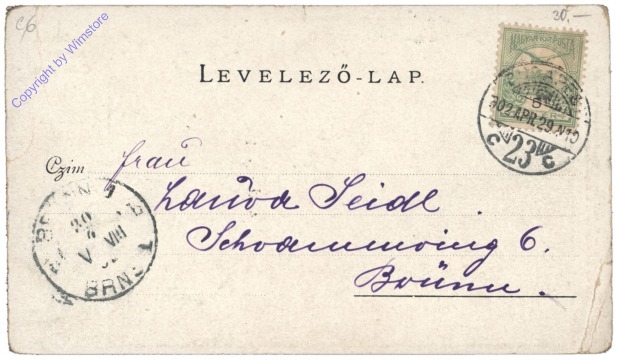 c/6
30,—
Copyright by Wimstore
MAGYAR KIR. POSTA
LEVELEZŐ-LAP.
902 APR. 29. N10
C 23 C
Czim
Frau
Laura Seidl.
Schrammring 6.
Brünn.
BRÜNN
30
BRNO